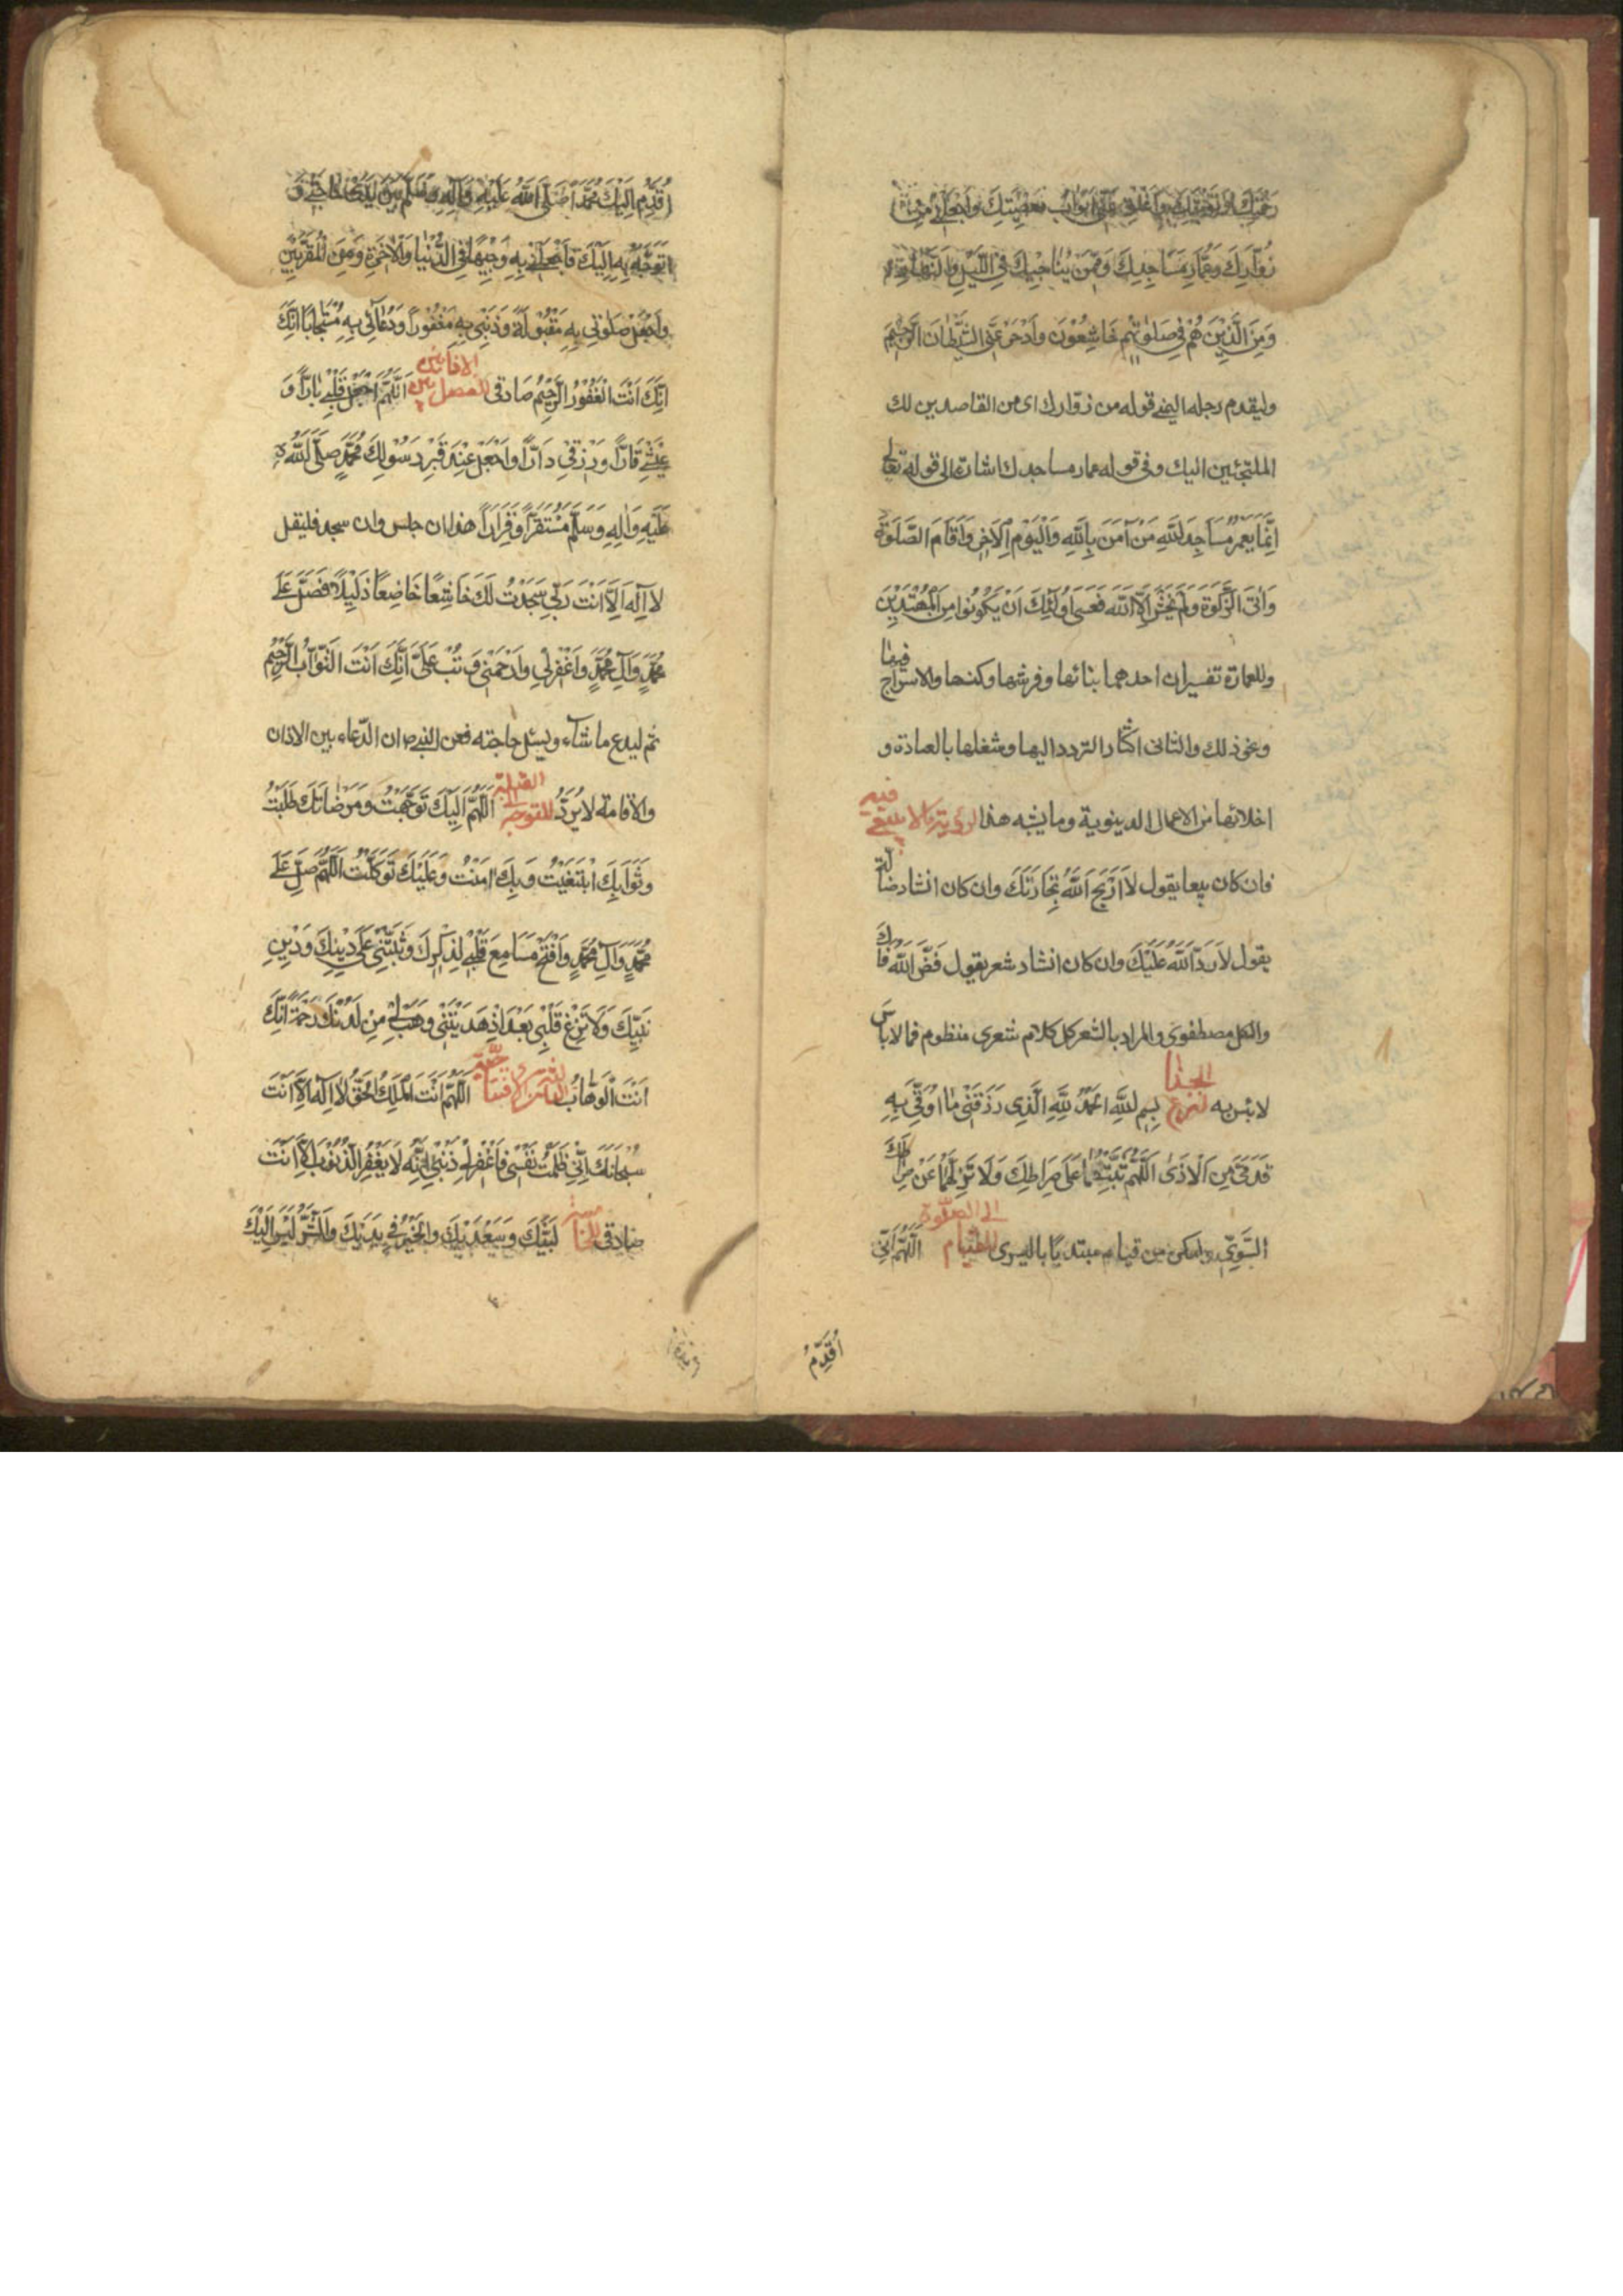 رحمتك وتوبتك واغلق عني ابواب معصيتك واجعلني من
زُوّارِكَ وعُمّارِ مَسَاجِدِكَ وَمِمَّنْ يُنَاجِيكَ فِي اللَّيْلِ وَالنَّهَارِ
وَمِنَ الَّذِينَ هُمْ فِي صَلوتِهِمْ خَاشِعُونَ وَادْحَرْ عَنِّي الشَّيْطَانَ الرَّجِيمَ
وليقدم رجله اليمنى قوله من زوارك اى من القاصدين لك
الملتجئين اليك وفى قوله عمار مساجدك اشارة الى قوله تعالى
اِنَّمَا يَعْمُرُ مَسَاجِدَ اللهِ مَنْ آمَنَ بِاللهِ وَالْيَوْمِ الْآخِرِ وَاَقَامَ الصَّلوةَ
وَاتَى الزَّكوةَ وَلَمْ يَخْشَ اِلَّا اللهَ فَعَسى اُولئِكَ اَنْ يَكُونُوا مِنَ الْمُهْتَدِينَ
وللعمارة تفسيران احدهما بنائها وفرشها وكنسها والاسراج فيها
ونحو ذلك والثانى اكثار التردد اليها وشغلها بالعبادة و
اخلائها من الاعمال الدينوية وما يشبه هذا لرؤية ما لا ينبغى فيه
فان كان بيعا يقول لَا اَرْبَحَ اللهُ تِجَارَتَكَ وان كان انشاد ضالة
يقول لَا رَدَّ اللهُ عَلَيْكَ وان كان انشاد شعر يقول فَضَّ اللهُ فَاكَ
والكل مصطفوى والمراد بالشعر كل كلام شعرى منظوم فما لا باس
لا باس به لنزع الحذا بِسْمِ اللهِ الْحَمْدُ لِلّهِ الَّذِى رَزَقَنِى مَا اُوَقِّى بِهِ
قَدَمَىَّ مِنَ الْاَذى اَللّهُمَّ ثَبِّتْهُمَا عَلى صِرَاطِكَ وَلَا تُزِلَّهُمَا عَنْ صِرَاطِكَ
السَّوِىِّ وليكن من قيام مبتديًا باليسرى للقيام الى الصلوة اَللّهُمَّ اِنِّى
اُقَدِّمُ
اُقَدِّمُ اِلَيْكَ مُحَمَّدًا صَلَّى اللهُ عَلَيْهِ وَآلِهِ وَسَلَّمَ بَيْنَ يَدَىْ حَاجَتِى وَ
اَتَوَجَّهُ بِهِ اِلَيْكَ فَاجْعَلْنِى بِهِ وَجِيهًا فِى الدُّنْيَا وَالْآخِرَةِ وَمِنَ الْمُقَرَّبِينَ
وَاجْعَلْ صَلوتِى بِهِ مَقْبُولَةً وَذَنْبِى بِهِ مَغْفُورًا وَدُعَآئِى بِهِ مُسْتَجَابًا اِنَّكَ
اِنَّكَ اَنْتَ الْغَفُورُ الرَّحِيمُ صادقى للفصل بين الاذانين اَللّهُمَّ اجْعَلْ قَلْبِى بَارًّا وَ
عَيْشِى قَارًّا وَرِزْقِى دَارًّا وَاجْعَلْ عِنْدَ قَبْرِ رَسُولِكَ مُحَمَّدٍ صَلَّى اللهُ
عَلَيْهِ وَالِهِ وَسَلَّمَ مُسْتَقَرًّا وَقَرَارًا هذا ان جلس وان سجد فليقل
لَا اِلهَ اِلَّا اَنْتَ رَبِّى سَجَدْتُ لَكَ خَاشِعًا خَاضِعًا ذَلِيلًا فَصَلِّ عَلى
مُحَمَّدٍ وَآلِ مُحَمَّدٍ وَاغْفِرْ لِى وَارْحَمْنِى وَتُبْ عَلَىَّ اِنَّكَ اَنْتَ التَّوَّابُ الرَّحِيمُ
ثم ليدع ما شاء ويسئل حاجته فعن النبى ص ان الدّعاء بين الاذان
والاقامة لا يُرَدُّ للتوجه الى القبلة اَللّهُمَّ اِلَيْكَ تَوَجَّهْتُ وَمَرْضَاتَكَ طَلَبْتُ
وَثَوَابَكَ ابْتَغَيْتُ وَبِكَ امَنْتُ وَعَلَيْكَ تَوَكَّلْتُ اَللّهُمَّ صَلِّ عَلى
مُحَمَّدٍ وَآلِ مُحَمَّدٍ وَافْتَحْ مَسَامِعَ قَلْبِى لِذِكْرِكَ وَثَبِّتْنِى عَلى دِينِكَ وَدِينِ
نَبِيِّكَ وَلَا تُزِغْ قَلْبِى بَعْدَ اِذْ هَدَيْتَنِى وَهَبْ لِى مِنْ لَدُنْكَ رَحْمَةً اِنَّكَ
اَنْتَ الْوَهَّابُ اَللّهُمَّ اَنْتَ الْمَلِكُ الْحَقُّ لَا اِلهَ اِلَّا اَنْتَ
سُبْحَانَكَ اِنِّى ظَلَمْتُ نَفْسِى فَاغْفِرْ لِى ذَنْبِى اِنَّهُ لَا يَغْفِرُ الذُّنُوبَ اِلَّا اَنْتَ
صادقى لَبَّيْكَ وَسَعْدَيْكَ وَالْخَيْرُ فِى يَدَيْكَ وَالشَّرُّ لَيْسَ اِلَيْكَ